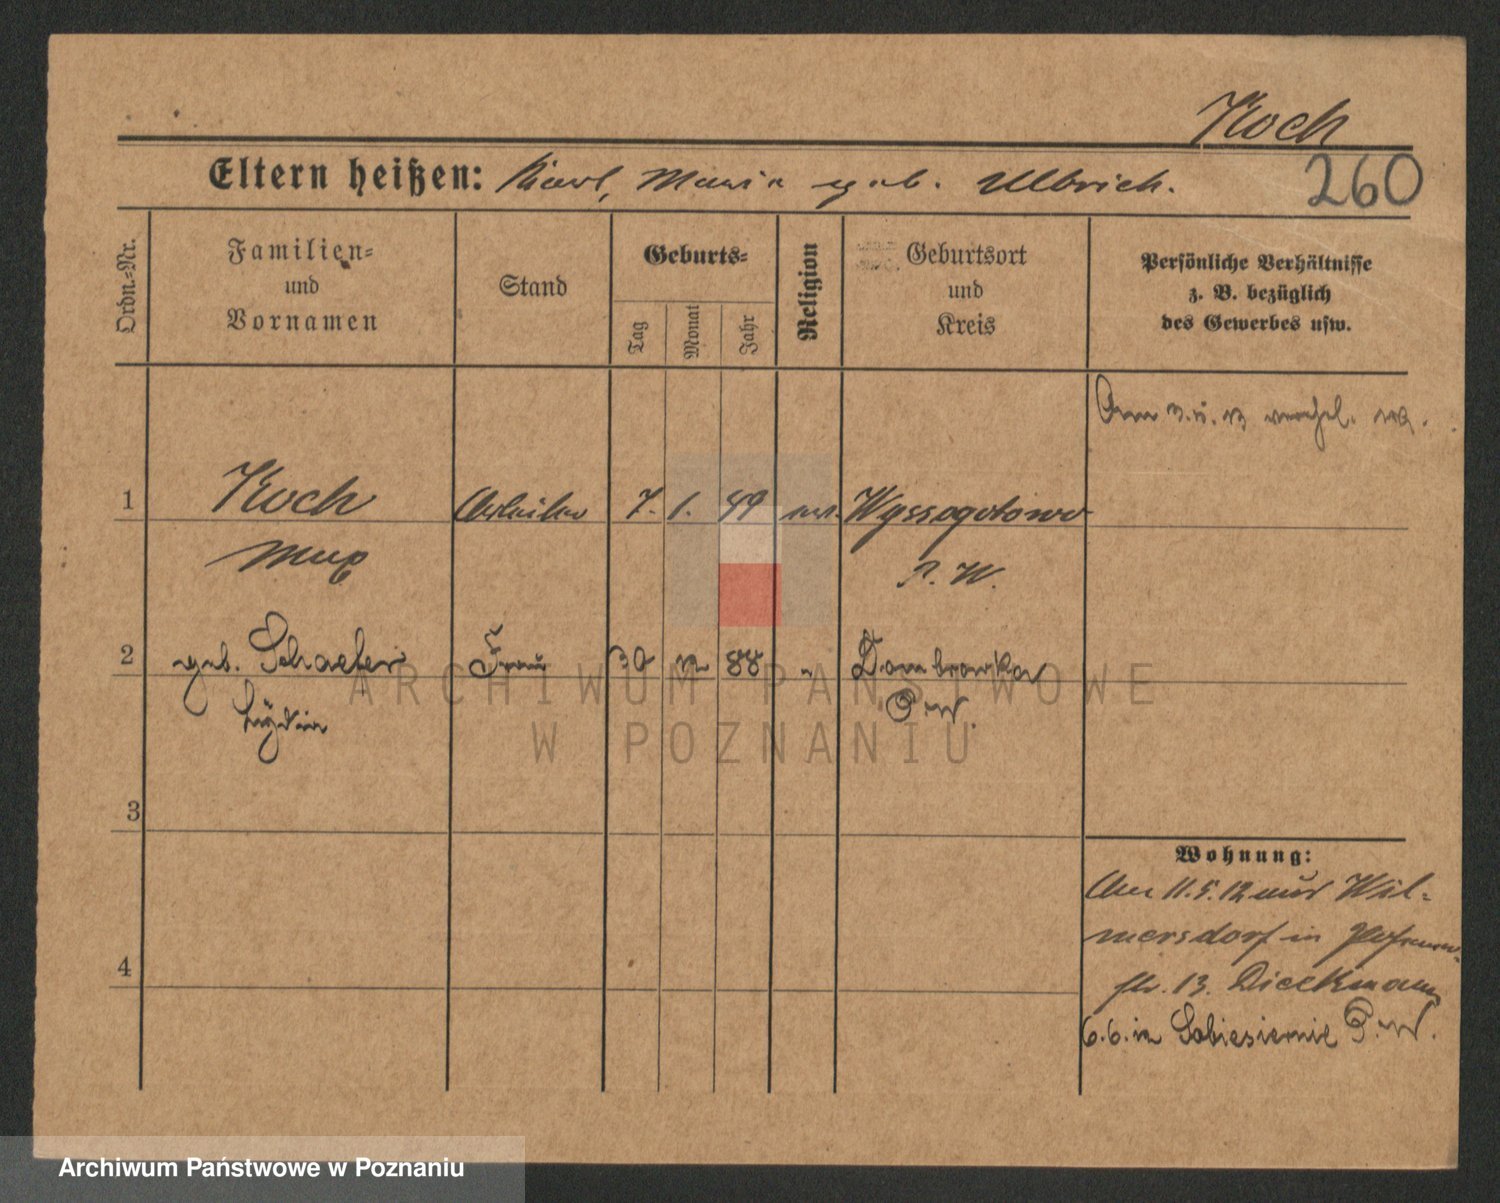 Koch
260
Eltern heißen: Karl, Maria geb. Ulbrich.
Ordn.-Nr.
Familien-
und
Vornamen
Stand
Geburts-
Tag
Monat
Jahr
Religion
Geburtsort
und
Kreis
Persönliche Verhältnisse
z. B. bezüglich
des Gewerbes usw.
Am 3. 13 verehel.
1 Koch Arbeiter 7. 1. ev. Wyssogotowo
Max P. W.
2 geb. Schaefer Frau 30 88 " Dombrowka
Lydia P. W.
3
4
Wohnung:
Am 11.5.12 aus Wil-
mersdorf in
str. 13. Dieckmann
6.6. in Sobiesiernie P. W.
ARCHIWUM PAŃSTWOWE
W POZNANIU
Archiwum Państwowe w Poznaniu